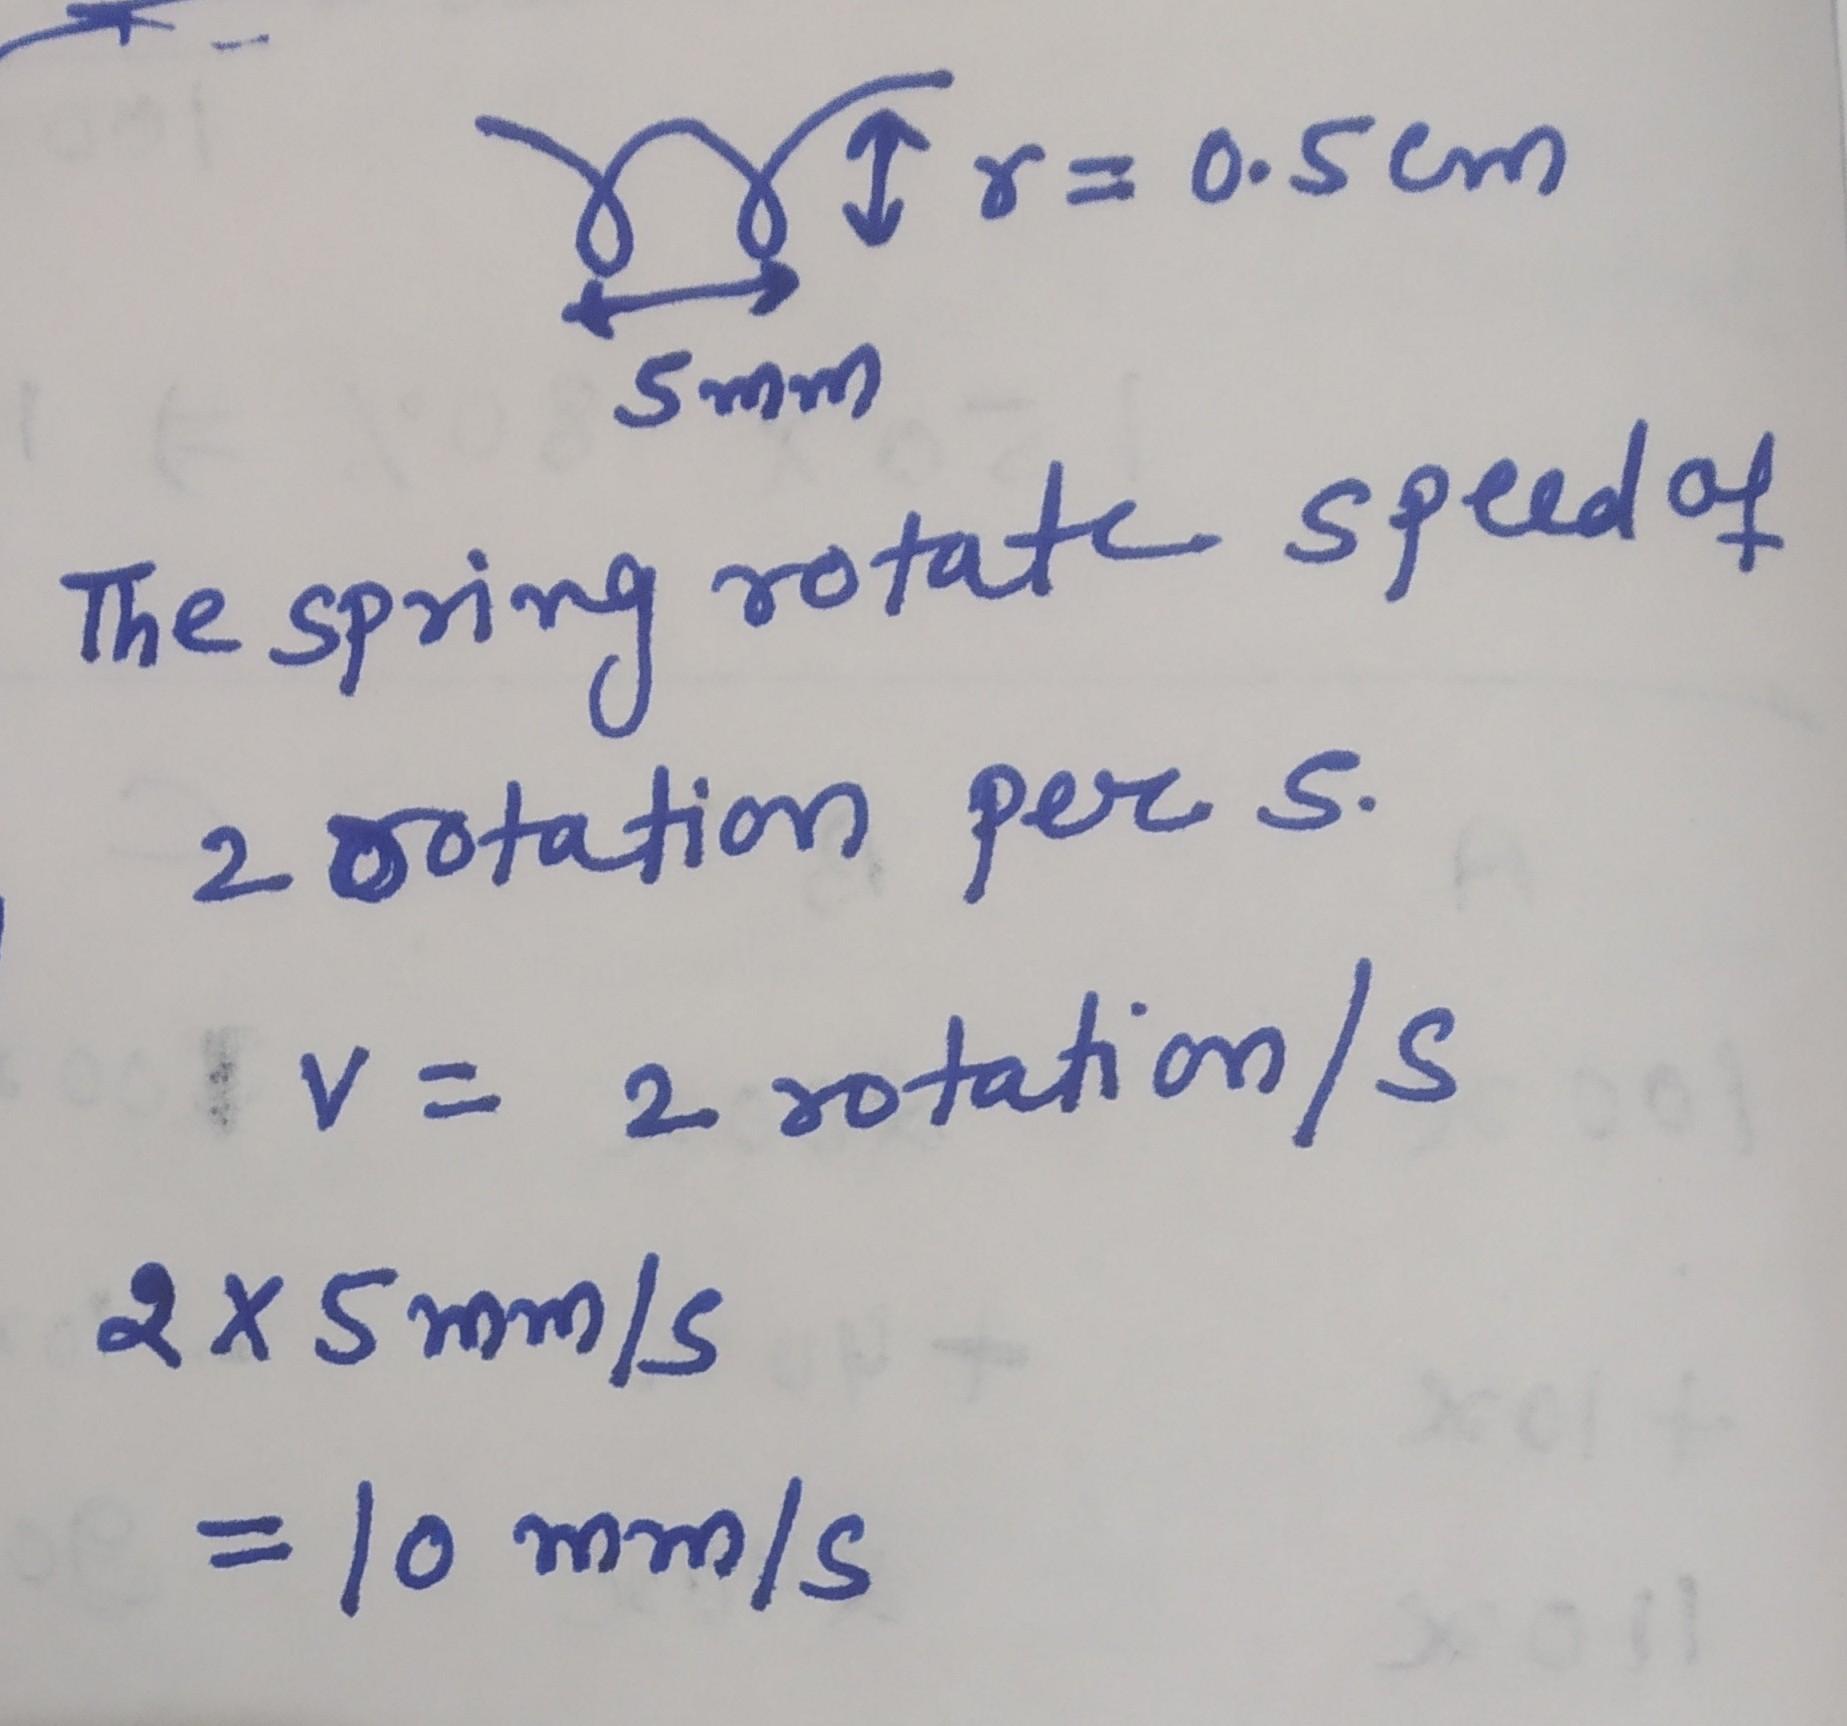 r = 0.5 cm
5 mm
The spring rotate speed of
2 rotation per s.
v = 2 rotation/s
2 x 5 mm/s
= 10 mm/s